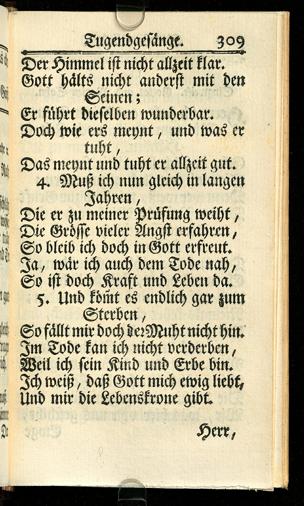 Tugendgesänge. 309
Der Himmel ist nicht allzeit klar.
Gott hälts nicht anderst mit den
Seinen;
Er führt dieselben wunderbar.
Doch wie ers meynt, und was er
tuht,
Das meynt und tuht er allzeit gut.
4. Muß ich nun gleich in langen
Jahren,
Die er zu meiner Prüfung weiht,
Die Grösse vieler Angst erfahren,
So bleib ich doch in Gott erfreut.
Ja, wär ich auch dem Tode nah,
So ist doch Kraft und Leben da.
5. Und kom̃t es endlich gar zum
Sterben,
So fällt mir doch der Muht nicht hin.
Im Tode kan ich nicht verderben,
Weil ich sein Kind und Erbe bin.
Ich weiß, daß Gott mich ewig liebt,
Und mir die Lebenskrone gibt.
Herr,